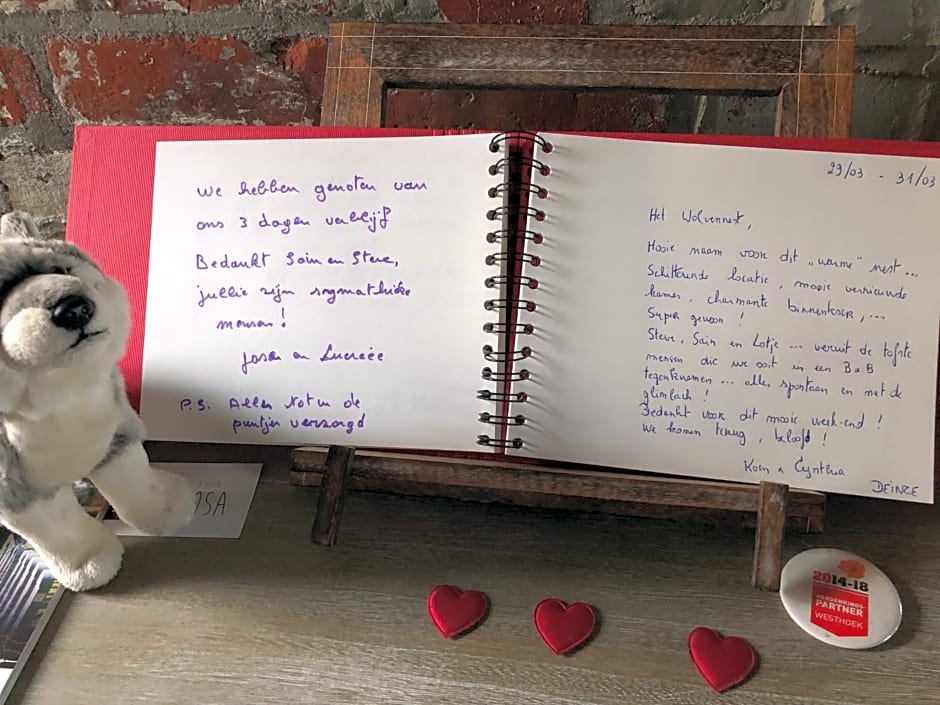 We hebben genoten van
ons 3 dagen verblijf
Bedankt Sain en Steve,
jullie zijn sygmathieke
mensen!
Josen en Lucrèce
P.S. Alles tot in de
puntjes verzorgd
29/03 - 31/03
Het Wolvennest,
Mooie naam voor dit „warme" nest...
Schitterende locatie, mooie vernieuwde
kamer, charmante binnenkoer, ...
Super gewoon!
Steve, Sain en Lotje... veruit de tofste
mensen die we ooit in een B&B
tegenkwamen... alles spontaan en met de
glimlach!
Bedankt voor dit mooie week-end!
We komen terug, beloofd!
Koen & Cynthia
DEINZE
2014-18
HERDENKINGS-
PARTNER
WESTHOEK